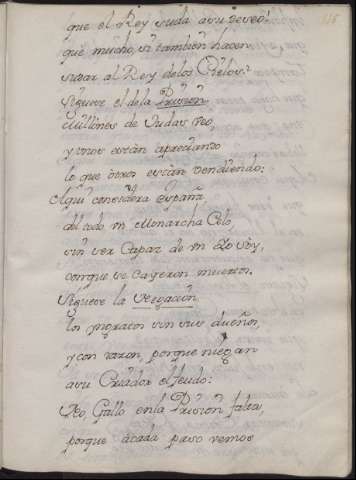 que el Rey suda a su deseo?
que mucho, si tambien hacen
sudar al Rey de los Cielos?
Siguese el de la Prision
millones de Judas veo,
y unos estàn apreciando
lo que otros estàn vendiendo:
Aqui considera España
del todo un Monarcha
sin ser Capaz de un Yo soy,
conque se cayeron muertos.
Siguese la Negacion
los ingratos sin sus dueños,
y con razon, porque niegan
a su Criador el feudo:
No, Gallo en la Prision falta,
porque à cada paso vemos